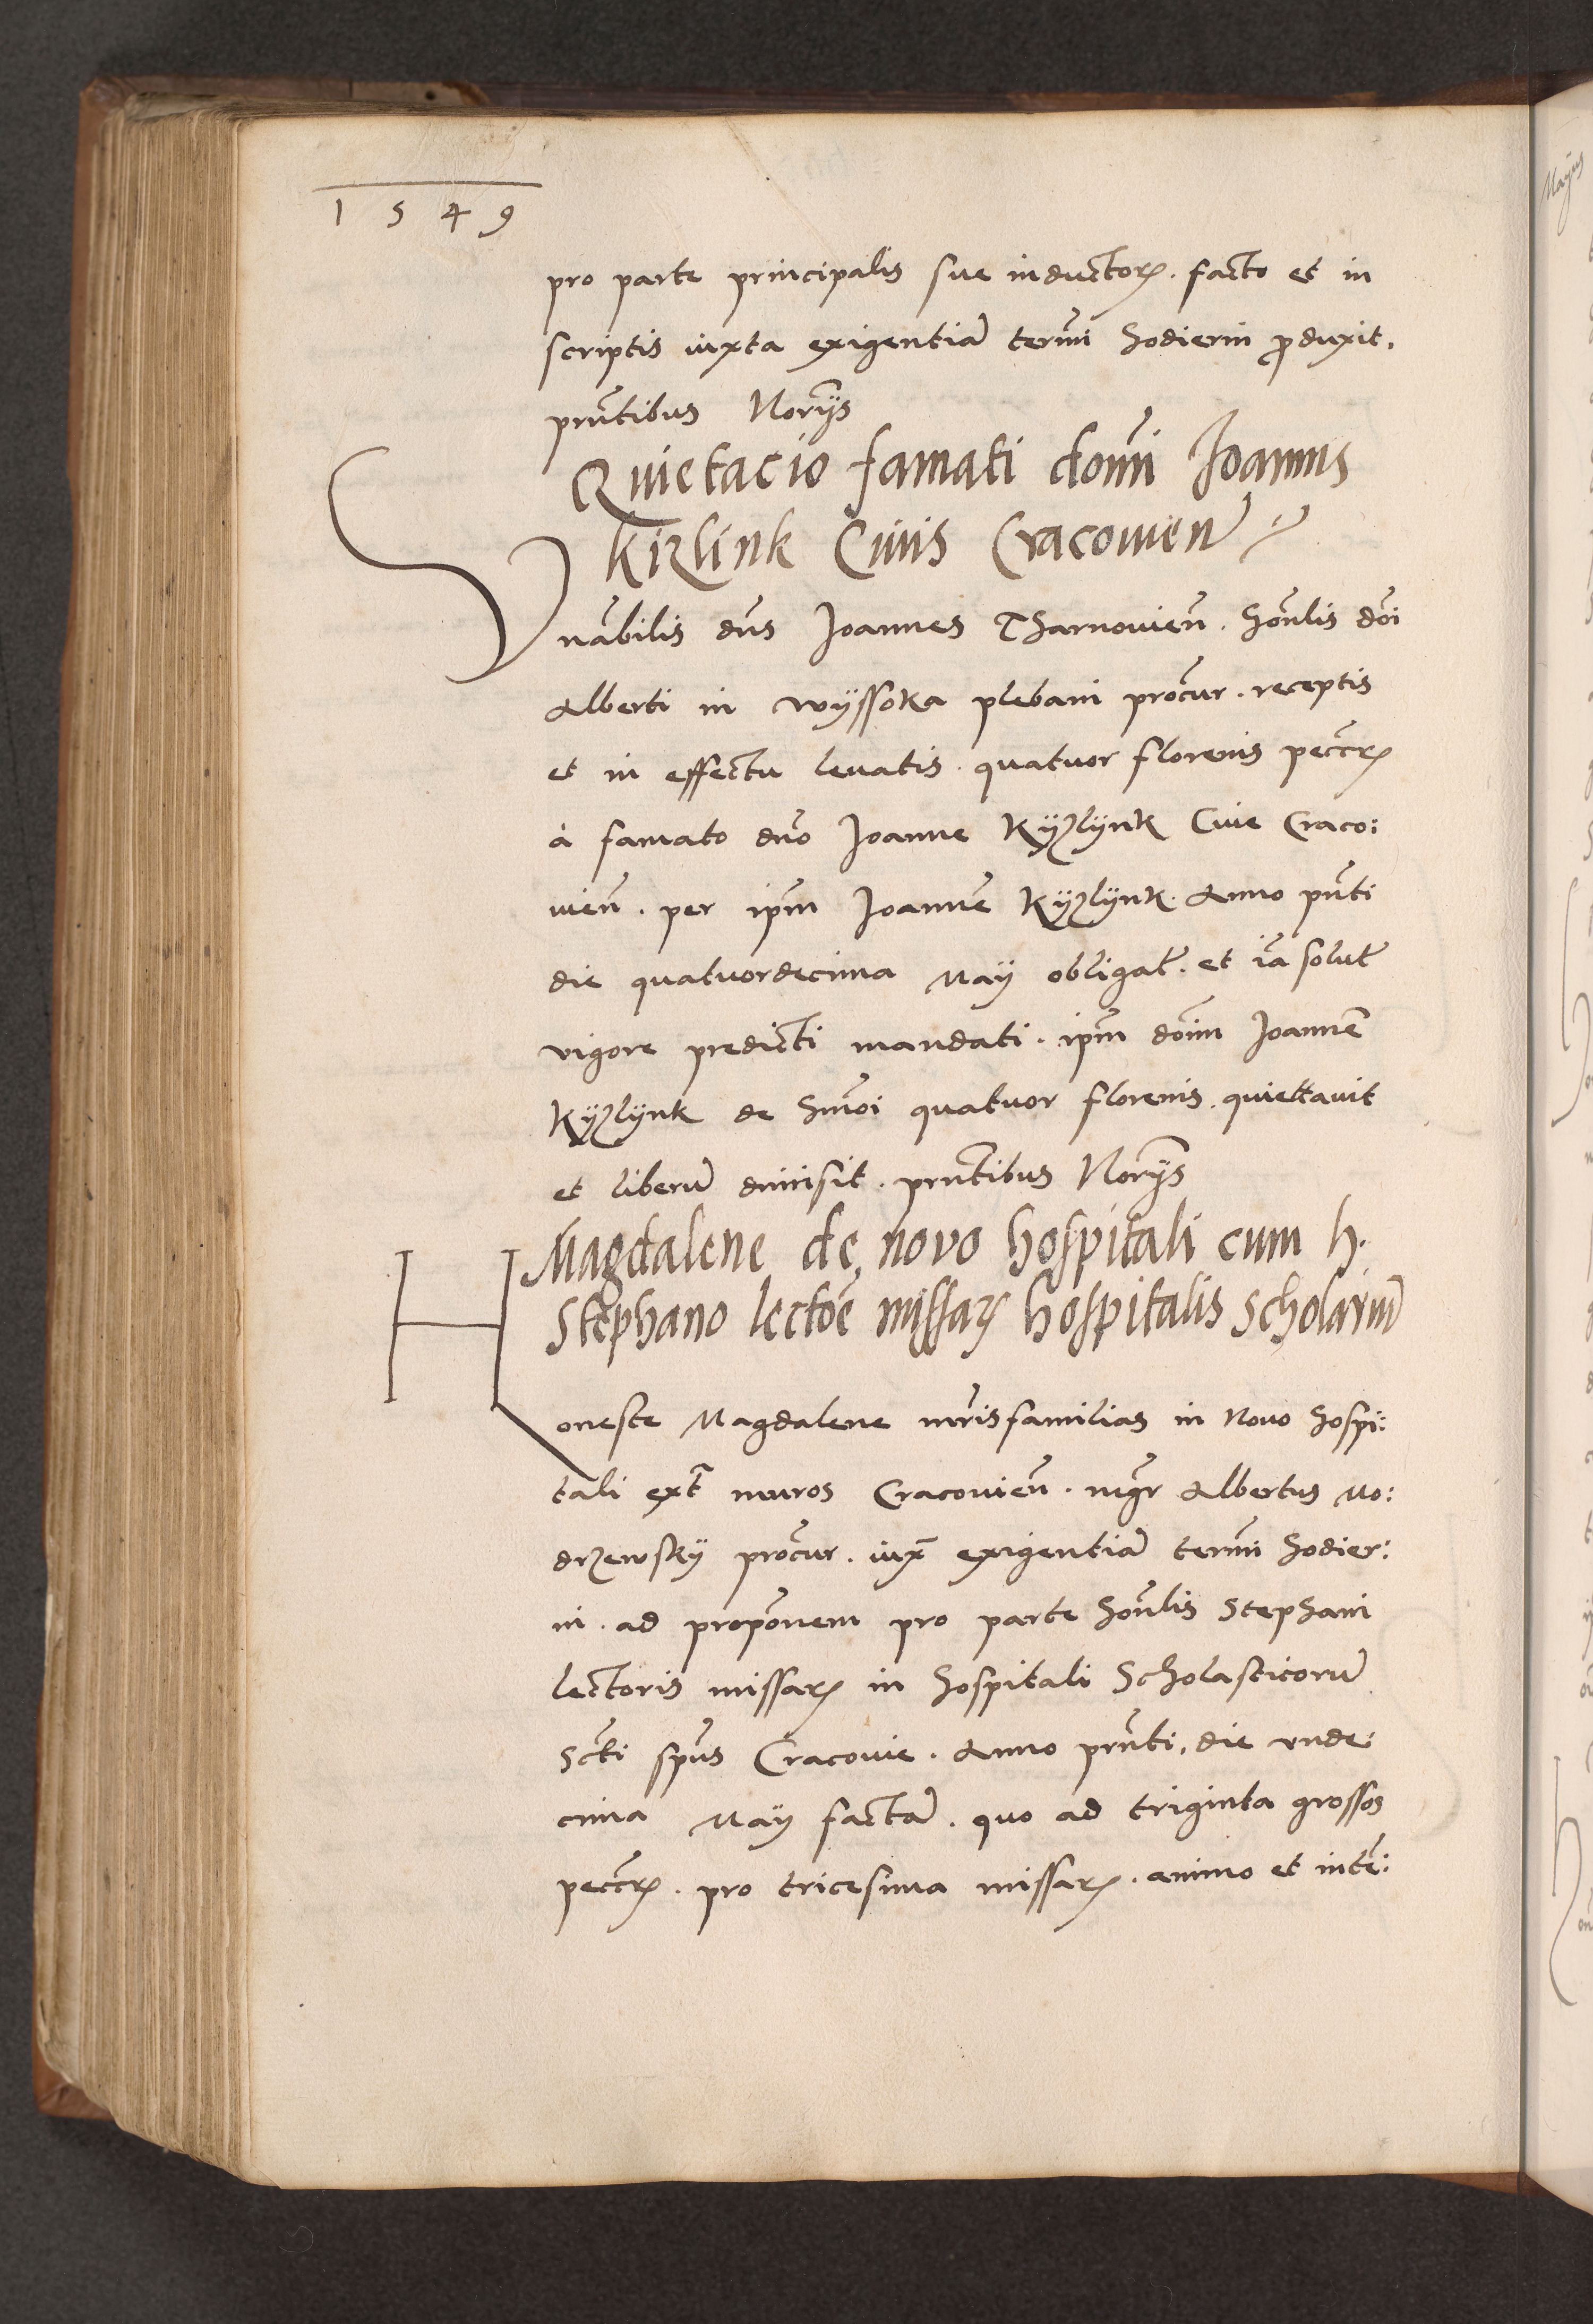 1549
pro parte principalis sue inductorꝝ. facto et in
scriptis iuxta exigentiã termĩ hodierni ꝓduxit.
pr̃ntibus Norÿs
Quietacio famati domĩ Ioannis
Kizlink Ciuis Cracouieñ
Vnãbilis dñs Joannes Tharnouieñ. hoñlis doi
Alberti in wÿssoka plebani procur. receptis
et in effectu leuatis. quatuor florenis peccꝝ
à famato dño Joanne Kÿzlÿnk Ciue Craco:
uieñ. per ipm̃ Joannẽ Kÿzlÿnk. Anno pñti
die quatuordecima Maÿ obligat̃. et iã solut̃
vigore predicti mandati. ipm̃ doñm Joannẽ
Kÿzlÿnk de hm̃oi quatuor florenis. quiettauit
et liberũ dimisit. prñtibus Norÿs
Magdalene de novo hospitali cum h.
Stephano lectoẽ missarꝝ hospitalis Scholariũ
Honeste Magdalene mr̃isfamilias in Novo hospi:
tali ext̃ muros Cracouieñ. mgr̃ Albertus Mo:
drzewskÿ procur. iux̃ exigentiã termĩ hodier:
ni. ad propõnem pro parte hoñlis Stephani
lectoris missarꝝ in hospitali Scholasticorũ
Scti sp̃us Cracouie. Anno prñti. die vnde:
cima Maÿ factã. quo ad triginta grossos
peccꝝ. pro tricesima missarꝝ. animo et intẽ: